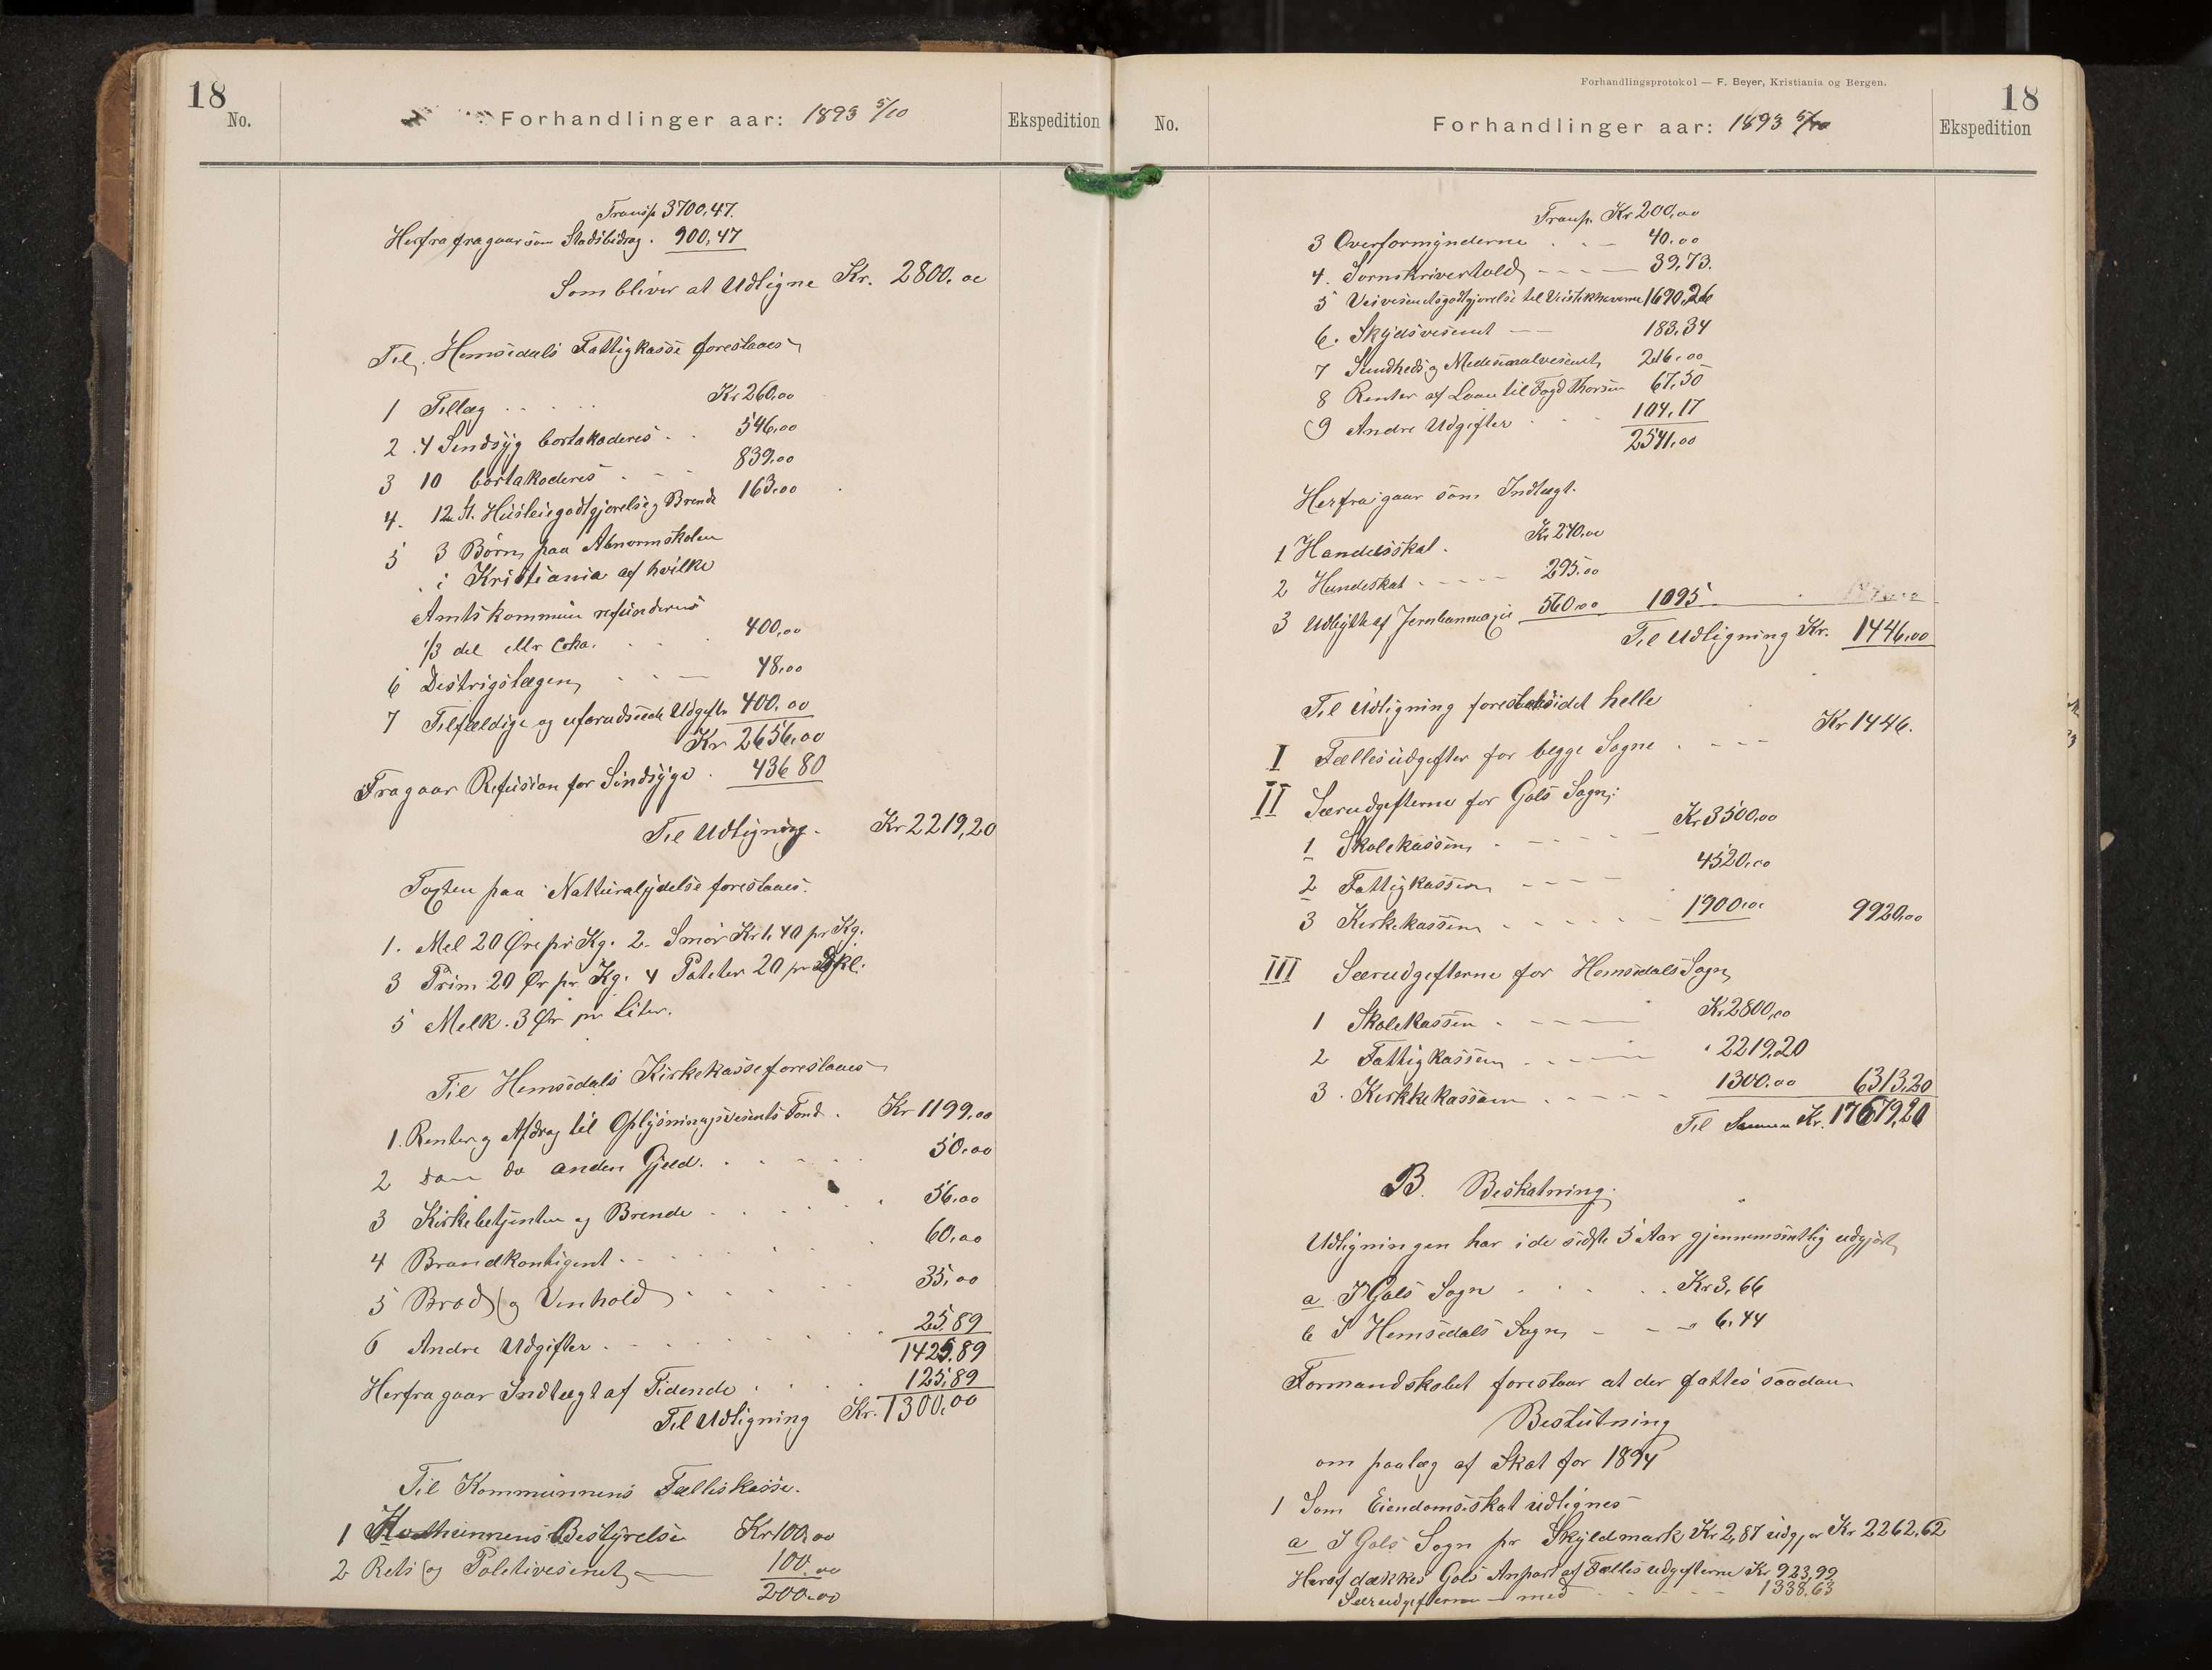 18
No.
Forhandlinger aar: 1893 5/10
Ekspedition
Transp 3700,47.
Herfra fragaar som Stadsbidrag. 900,47
Som bliver at Udligne Kr. 2800.00
Til Hemsedals Fattigkasse foreslaaes
1 Tillæg Kr 260,00
2 .4 Sindsyg bortakoderes 546,00
3 10 bortakoderes 839,00
4. 12 St. Husleiegodtgjørelse og Brende 163,00
5 3 Børn paa Abnormskolen
i Kristiania af hvilke
Amtskommun refunderes
1/3 del ellr Coka. 400,00
6 Distrigslægen 48,00
7 Tilfældige og uforudseede Udgifter 400.00
Kr 2656,00
Fragaar Refusion for Sindsyge 436 80
Til Udligning. Kr 2219,20
Taxten paa Natturalydelse foreslaaes.
1. Mel 20 Øre pr Kg. 2. Smør Kr 1,40 pr Kg.
3 Prim 20 Ør pr Kg. 4 Poteter 20 pr
5 Melk. 3 Ør pr Liter.
Til Hemsedals Kirkekasse foreslaaes
1. Renter og Afdrag til Oplysningsvesents Fond. Kr 1199,00
2 do anden Gjeld. 50,00
3 Kirkebetjenter og Brende 56,00
4 Brandkontigent 60,00
5 Brød og Vinhold 35,00
6 Andre Udgifter 25,89
1425,89
Herfra gaar Indtægt af Tidende 125,89
Til Udligning Kr. 1300,00
Til Kommunnens Fælliskasse.
1 Kommunnens Bestyrelse Kr 100,00
2 Rets og Politivesenet 100,00
200,00
Forhandlingsprotokol — F. Beyer, Kristiania og Bergen.
18
No.
Forhandlinger aar: 1893 5/10
Ekspedition
Transp. Kr 200,00
3 Overformynderne 40,00
4. Sornskriverhold 39,73.
5 Veivesenetsgodtgjørelse til Veistikkeverne 1690,26
6. Skydsvesenet 183,34
7 Sundheds og Medesinalvesenet 216,00
8 Renter af Laan til Fogd Thorsen 67,50
9 Andre Udgifter 104,17
2541,00
Herfra gaar som Indtægt.
1 Handelsskat. Kr 240,00
2 Hundeskat 295,00
3 Udbytte af Jernbaneaxie 560,00 1095
Til Udligning Kr. 1446,00
Til Udligning foreslaaes idet helle
I Fællisudgifter for begge Sogne Kr 1446.
II Særudgifterne for Gols Sogn:
1 Skolekassen Kr 3500,00
2 Fattigkassen 4520,00
3 Kirkekassen 1900,00 9920,00
III Særudgifterne for Hemsedals Sogn
1 Skolekassen Kr 2800,00
2 Fattigkassen 2219,20
3. Kirkkekassen 1300.00 6313,20
Til Samen Kr. 17679,20
B. Beskatning.
Udligningen har i de sidste 5 Aar gjennemsnitlig udgjort
a I Gols Sogn Kr 3,66
b I Hemsedals Sogn 6,44
Formandskabet foreslaar at der fattes saadan
Beslutning
om paalæg af Skat for 1894
1 Som Eiendomsskat udlignes
a I Gols Sogn pr Skyldmark Kr 2,87 udgjør Kr 2262,62
Heraf dækkes Gols Anpart af Fællisudgifterne Kr 923,99
Særudgifterne med 1338,63